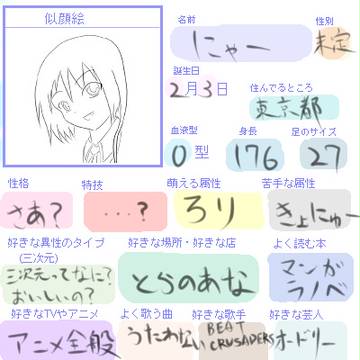 似顔絵
名前
性別
にゃー
未定
誕生日
2月3日
住んでるところ
東京都
血液型
身長
足のサイズ
O型
176
27
性格
特技
萌える属性
苦手な属性
さあ?
…?
ろり
きょにゅー
好きな異性のタイプ
(三次元)
好きな場所・好きな店
よく読む本
三次元ってなに?
おいしいの?
とらのあな
マンガ
ラノベ
好きなTVやアニメ
よく歌う曲
好きな歌手
好きな芸人
アニメ全般
うたわない
BEAT
CRUSADERS
オードリー